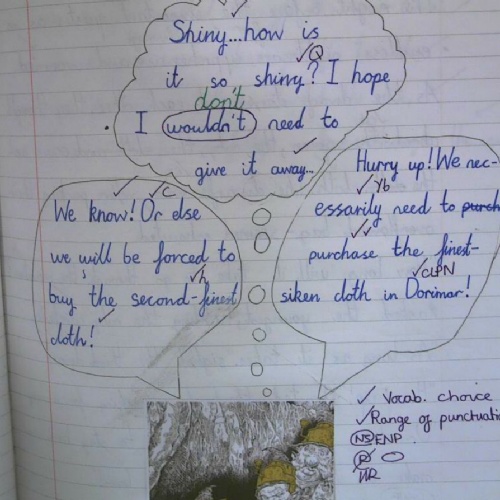 Shiny...how is
Q
it so shiny? I hope
don't
I wouldn't need to
give it away...
We know! Or else
C
we will be forced to
s
buy the second-finest
h
cloth!
Hurry up! We nec-
Yb
essarily need to purch
purchase the finest-
CLPN
siken cloth in Dorimar!
Vocab. choice
Range of punctuatio
NS ENP.
P